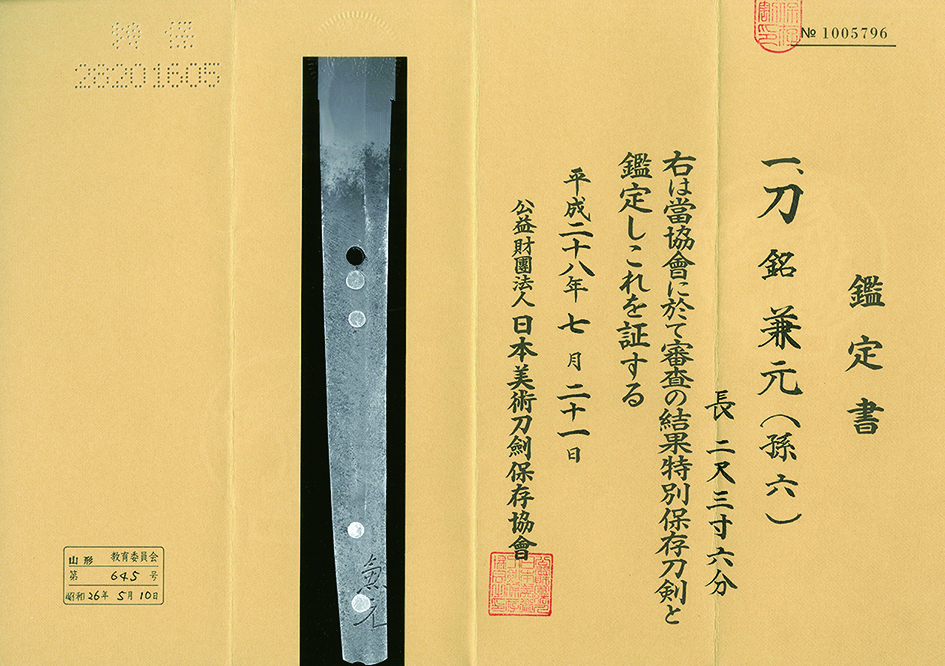 № 1005796
鑑定書
一、刀 銘 兼元(孫六)
長 二尺三寸六分
右は當協會に於て審査の結果特別保存刀剣と
鑑定しこれを証する
平成二十八年 七月 二十一日
公益財團法人 日本美術刀劍保存協會
兼元
特保
28201605
山形 教育委員会
第 645 号
昭和 26年 5月 10日